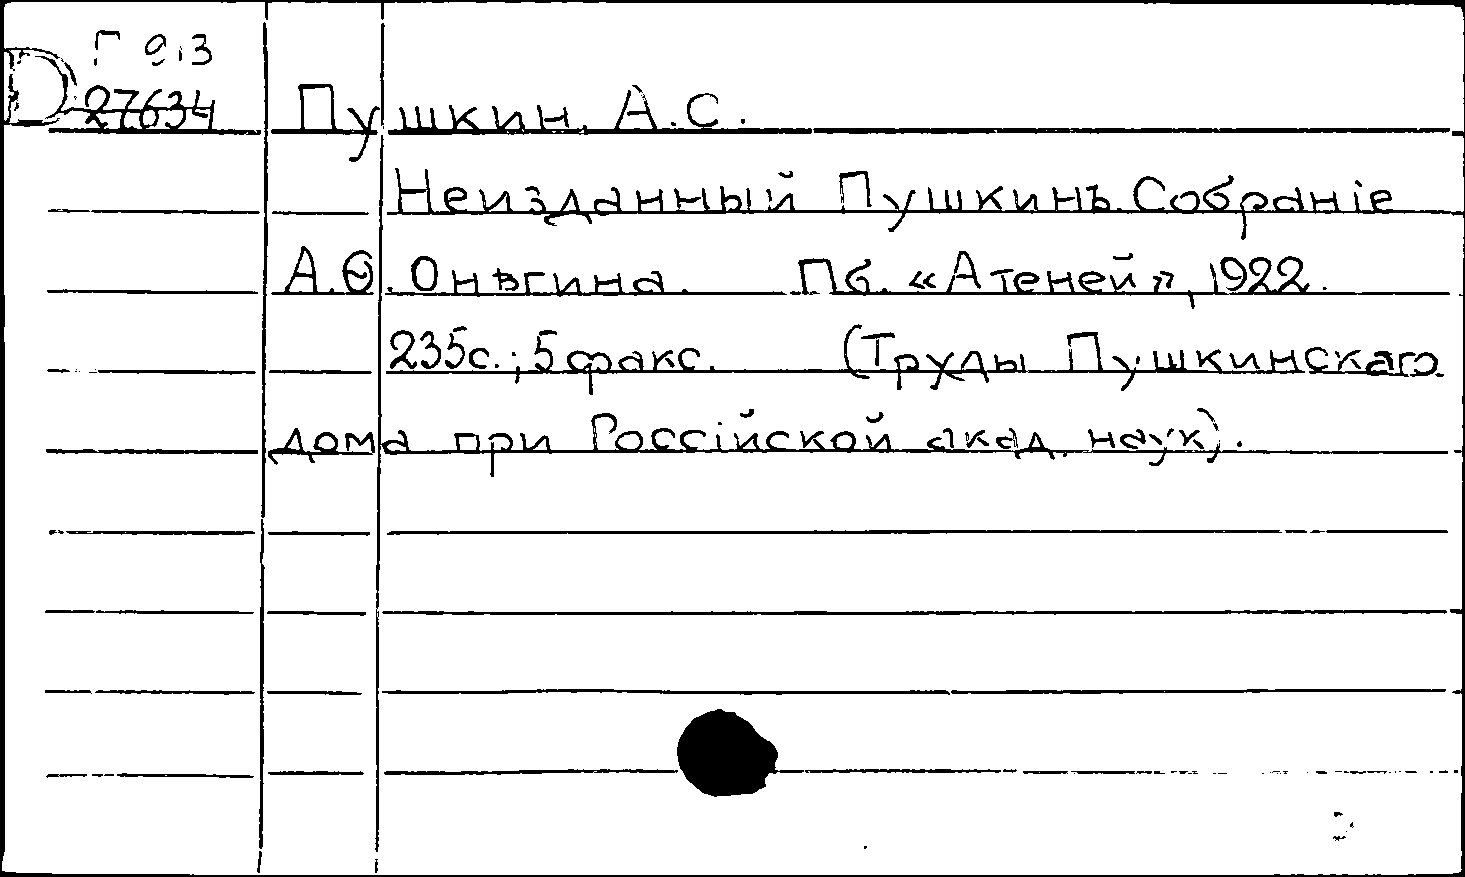 Г 913
27634
Пушкин, А.С.
Неизданный Пушкинъ. Собраніе
А.Ѳ. Онѣгина. Пб. «Атеней», 1922.
235с.; 5 факс. (Труды Пушкинскаго
дома при Россійской акад. наук).